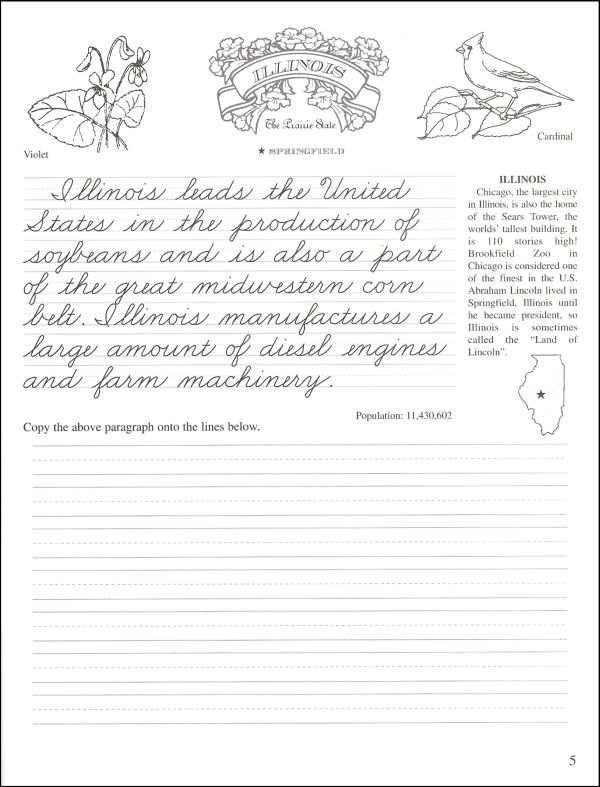 ILLINOIS
The Prairie State
★ SPRINGFIELD
Violet
Cardinal
Illinois leads the United
States in the production of
soybeans and is also a part
of the great midwestern corn
belt. Illinois manufactures a
large amount of diesel engines
and farm machinery.
ILLINOIS
Chicago, the largest city
in Illinois, is also the home
of the Sears Tower, the
worlds' tallest building. It
is 110 stories high!
Brookfield Zoo in
Chicago is considered one
of the finest in the U.S.
Abraham Lincoln lived in
Springfield, Illinois until
he became president, so
Illinois is sometimes
called the "Land of
Lincoln".
Population: 11,430,602
Copy the above paragraph onto the lines below.
5